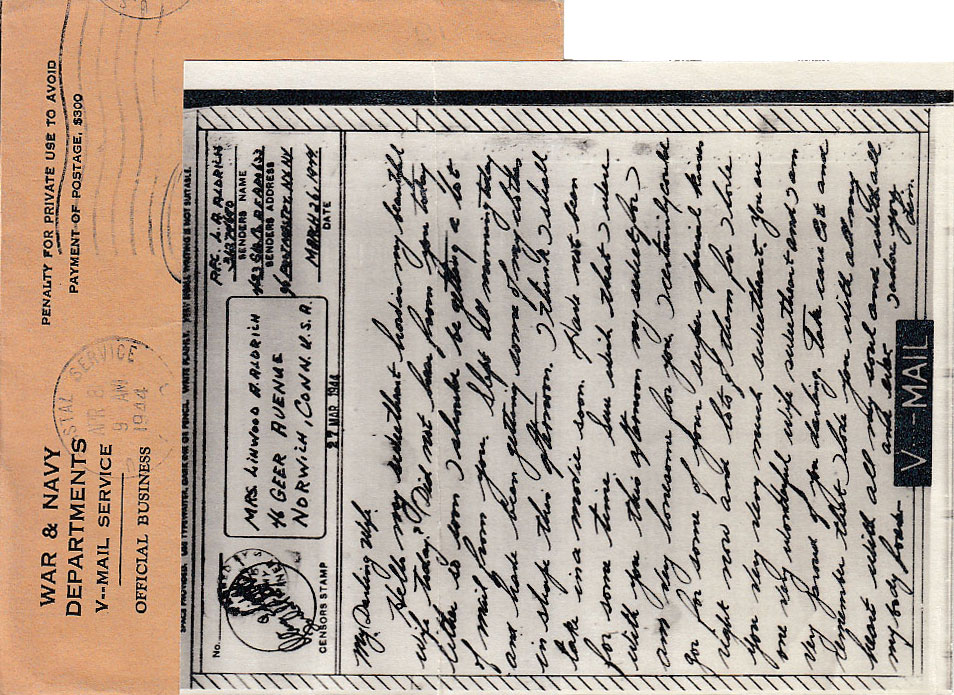 WAR & NAVY
DEPARTMENTS
V--MAIL SERVICE
OFFICIAL BUSINESS
PENALTY FOR PRIVATE USE TO AVOID
PAYMENT OF POSTAGE, $300
POSTAL SERVICE
APR 8
9 AM
1944
No.
CENSORS STAMP
MRS. LINWOOD A. ALDRICH
46 GEER AVENUE
NORWICH, CONN. U.S.A.
27 MAR 1944
PFC. L. A. ALDRICH
SENDERS NAME
SENDERS ADDRESS
℅ POSTMASTER, NY. NY
MARCH 26, 1944
DATE
My Darling Wife.
Hello my sweetheart how is my beautiful
wife today? Did not hear from you today
either so soon I should be getting a lot
of mail from you. Slept all morning today
and have been getting some of my clothes
in shape this afternoon. I think I shall
take in a movie soon. Have not been
for some time. Sure wish that I were
with you this afternoon my sweet for I
am very lonesome for you. I certainly could
go for some of your super special kisses
right now and lots of them for I love
you very very much sweetheart. You are
one very wonderful wife sweetheart and I am
very proud of you darling. Take care CE and
remember that I love you with all my
heart with all my soul and with all
my body forever and ever I adore you
Lin.
V···-MAIL